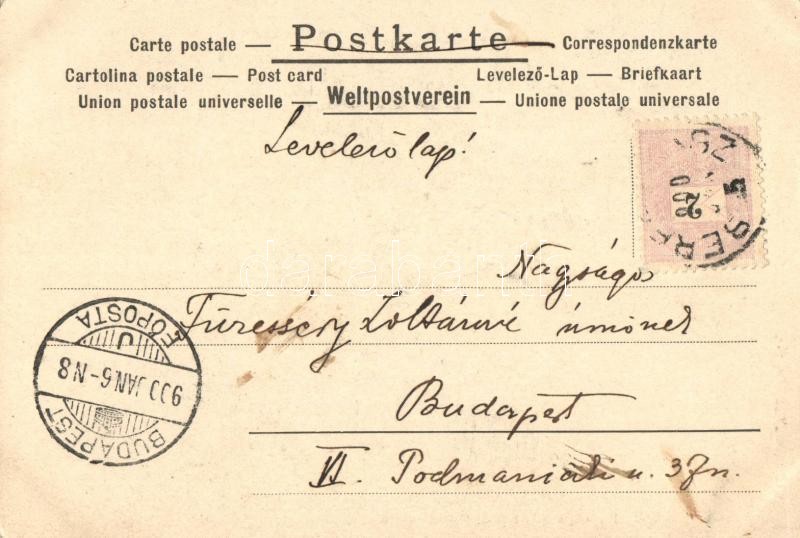 Carte postale — Postkarte — Correspondenzkarte
Cartolina postale — Post card Levelező-Lap — Briefkaart
Union postale universelle — Weltpostverein — Unione postale universale
Levelező lap!
Nagságos
Zoltánné úrnőnek
Budapest
VI. Podmaniczki u. 37
BUDAPEST
900 JAN 6-N8
J
FŐPOSTA
darabanth